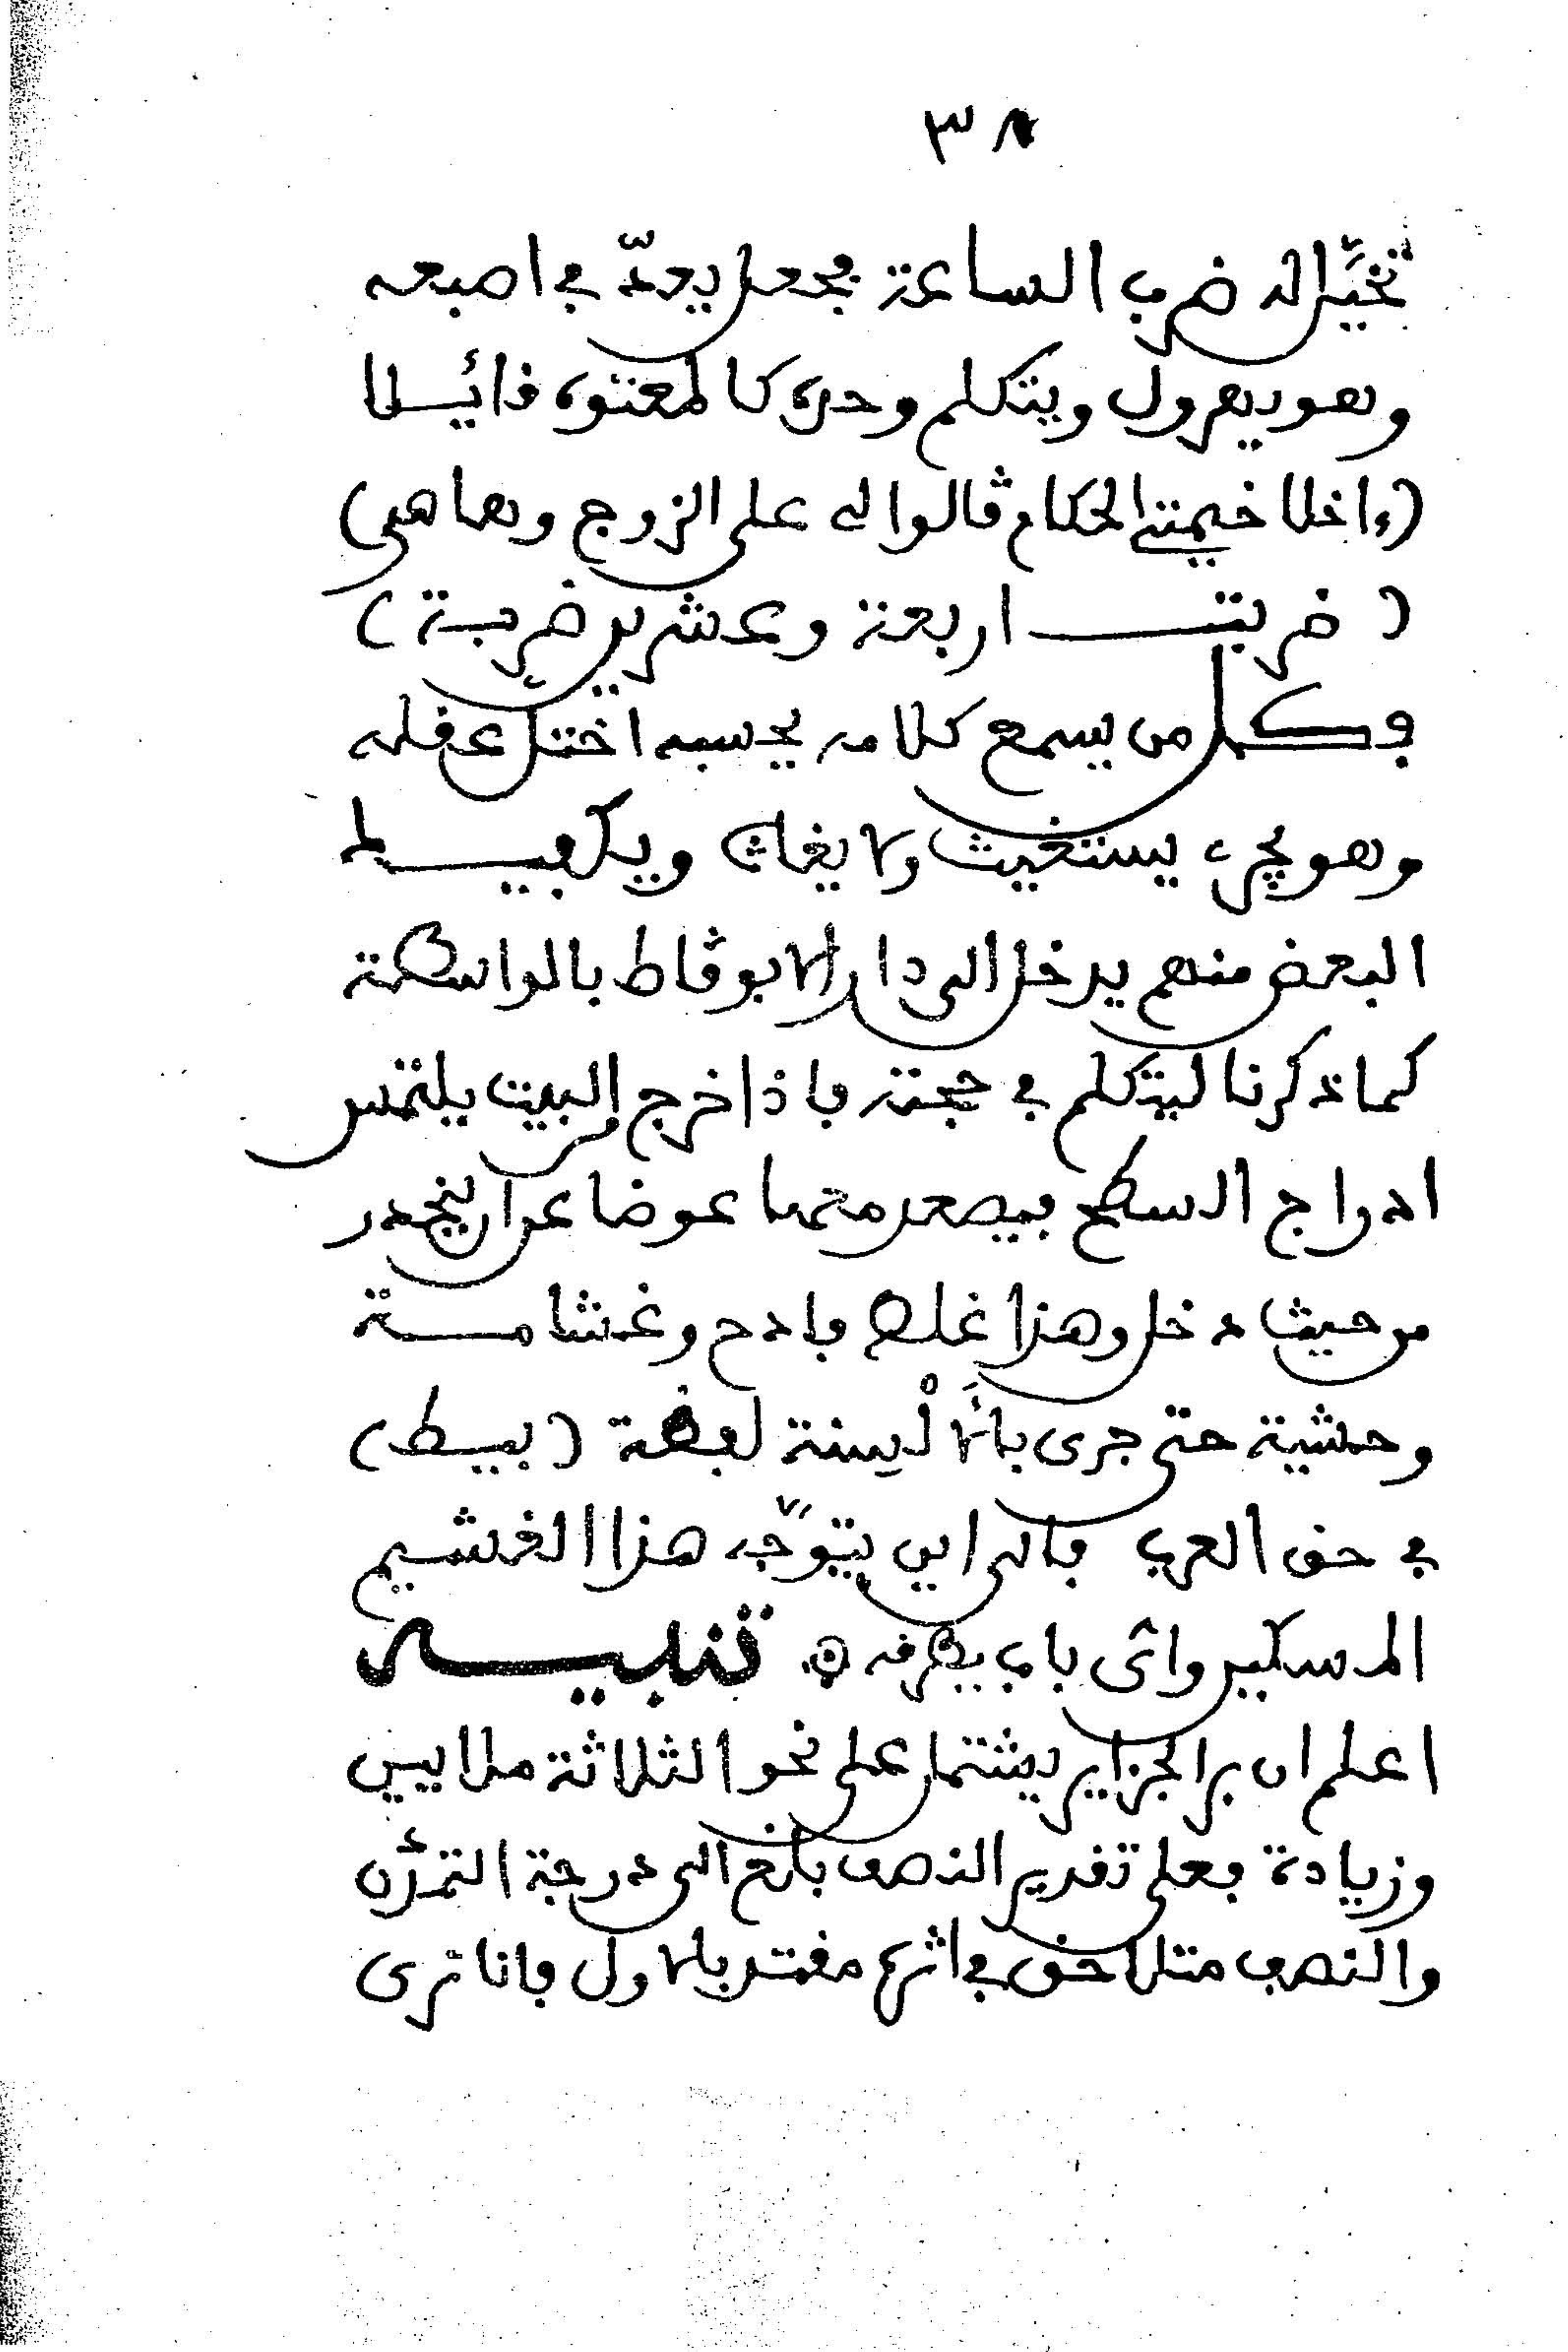 ٣٨
تخيَّل له ضرب الساعة فجعل يعدّ في اصبعه
وهو يهرول ويتكلم وحده كالمعتوه قائـــلا
(واخلا خيمتي الحكام قالوا لي على الزوج وها هي)
(ضربتـــــ اربعة وعشرين ضربة)
فكـــل من يسمع كلامه يحسبه اختل عقله
وهو يجري يستغيث ولا يغاث ويكفيـــــك
البعض منهم يدخل الى دار الابوقاط بالواسطة
كما ذكرنا ليتكلم في حجته فاذا خرج من البيت يلتمس
ادراج السطح فيصعد معها عوضا عن ان ينحدر
من حيث دخل وهذا غلط فادح وغشامـــة
وحشية حتى جرى بالَالْسِنة لفظة (بسيط)
في حق العرب فالى اين يتوجّه هذا الغشيم
المسكين واي باب يطرقه ۞ تنبيـــه
اعلم ان بر الجزاير يشتمل على نحو الثلاثة ملايين
وزيادة فعلى تقدير النصف بلغ الى درجة التمدّن
والنصف مثلا خف في اثره مقتد بالاول فانا نرى